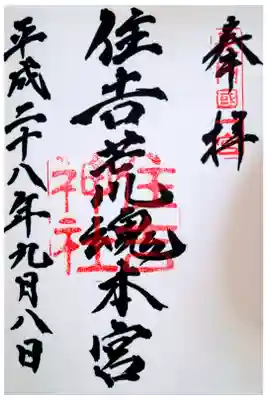 奉拝
住吉荒魂本宮
住吉
神社
平成二十八年九月八日